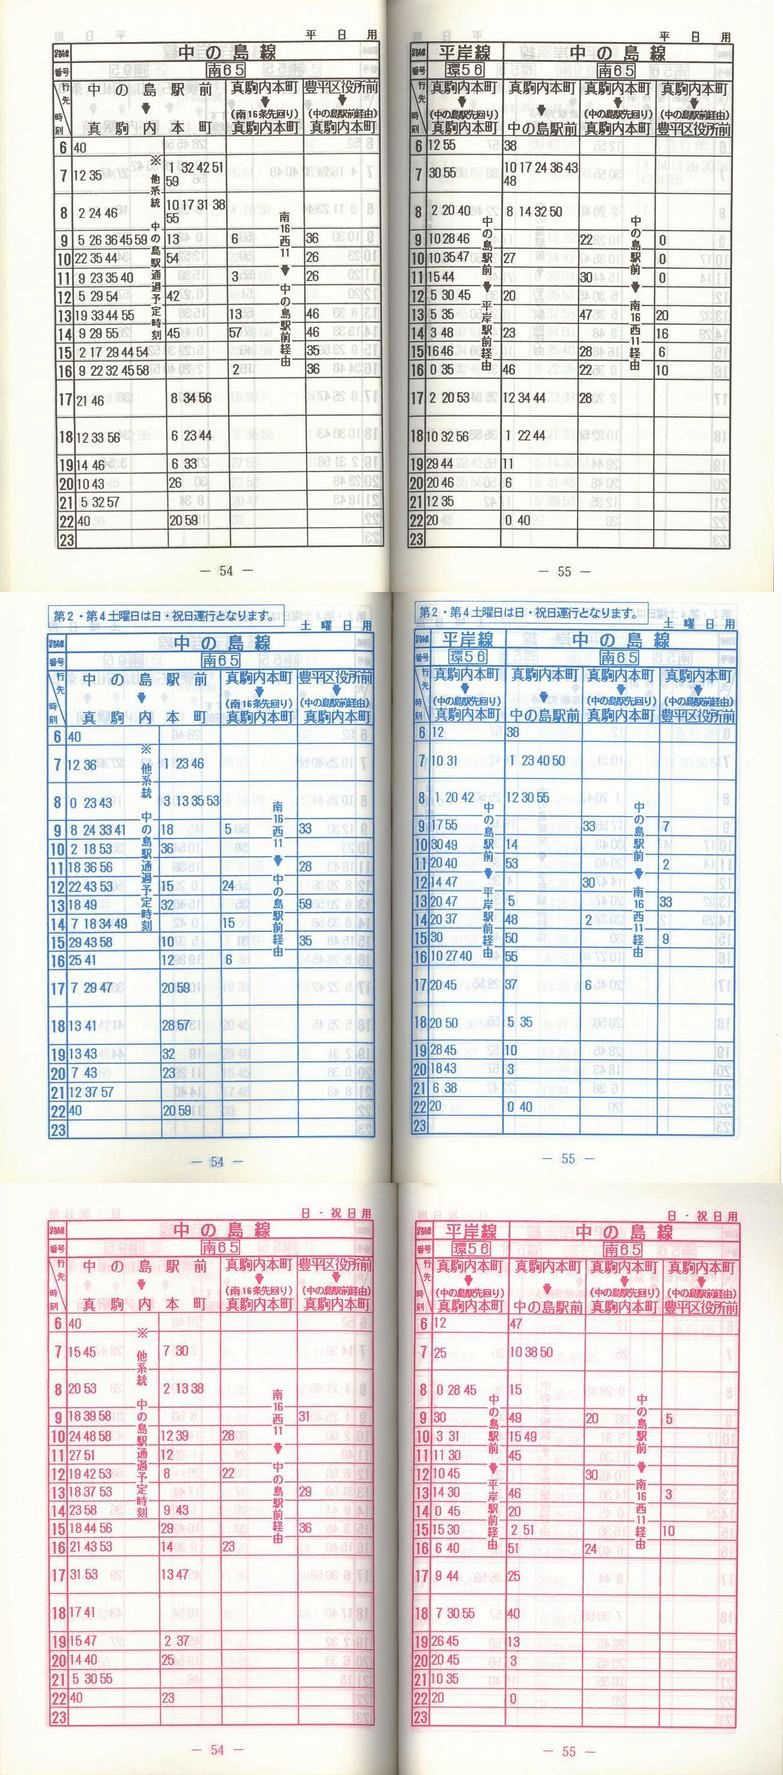 平日用
中の島線
番号 南65
行先 時刻
中の島駅前 真駒内本町
真駒内本町 (南16条先回り) 真駒内本町
豊平区役所前 (中の島駅前経由) 真駒内本町
※他系統 中の島駅通過予定時刻
南16西11 中の島駅前経由
6 40
7 12 35 1 32 42 51
59
8 2 24 46 10 17 31 38
55
9 5 26 36 45 59 13 6 36
10 22 35 44 54 26
11 9 23 35 40 3 26
12 5 29 54 42
13 19 33 44 55 13 46
14 9 29 55 45 57 46
15 2 17 29 44 54 35
16 9 22 32 45 58 2 36
17 21 46 8 34 56
18 12 33 56 6 23 44
19 14 46 6 33
20 10 43 26
21 5 32 57
22 40 20 59
23
— 54 —
平日用
平岸線 中の島線
番号 環56 南65
行先 時刻
真駒内本町 (中の島駅先回り) 真駒内本町
真駒内本町 中の島駅前
真駒内本町 (中の島駅先回り) 真駒内本町
真駒内本町 (中の島駅前経由) 豊平区役所前
中の島駅前 平岸駅前経由
中の島駅前 南16西11経由
6 12 55 38
7 30 55 10 17 24 36 43
48
8 2 20 40 8 14 32 50
9 10 28 46 22 0
10 10 35 47 27 0
11 15 44 30 0
12 5 30 45 20
13 5 35 47 20
14 3 48 23 16
15 16 46 28 6
16 0 35 46 22 10
17 2 20 53 12 34 44 28
18 10 32 56 1 22 44
19 29 44 11
20 20 46 6
21 12 35
22 20 0 40
23
— 55 —
第2・第4土曜日は日・祝日運行となります。
土曜日用
中の島線
番号 南65
行先 時刻
中の島駅前 真駒内本町
真駒内本町 (南16条先回り) 真駒内本町
豊平区役所前 (中の島駅前経由) 真駒内本町
※他系統 中の島駅通過予定時刻
南16西11 中の島駅前経由
6 40
7 12 36 1 23 46
8 0 23 43 3 13 35 53
9 8 24 33 41 18 5 33
10 2 18 53 36
11 18 36 56 28
12 22 43 53 15 24
13 18 49 32 59
14 7 18 34 49 15
15 29 43 58 10 35
16 25 41 12 6
17 7 29 47 20 59
18 13 41 28 57
19 13 43 32
20 7 43 23
21 12 37 57
22 40 20 59
23
— 54 —
第2・第4土曜日は日・祝日運行となります。
土曜日用
平岸線 中の島線
番号 環56 南65
行先 時刻
真駒内本町 (中の島駅先回り) 真駒内本町
真駒内本町 中の島駅前
真駒内本町 (中の島駅先回り) 真駒内本町
真駒内本町 (中の島駅前経由) 豊平区役所前
中の島駅前 平岸駅前経由
中の島駅前 南16西11経由
6 12 38
7 10 31 1 23 40 50
8 1 20 42 12 30 55
9 17 55 33 7
10 30 49 14
11 20 40 53 2
12 14 47 30
13 20 47 5 33
14 20 37 48 2
15 30 50 9
16 10 27 40 55
17 20 45 37 6
18 20 50 5 35
19 28 45 10
20 18 43 3
21 6 38
22 20 0 40
23
— 55 —
日・祝日用
中の島線
番号 南65
行先 時刻
中の島駅前 真駒内本町
真駒内本町 (南16条先回り) 真駒内本町
豊平区役所前 (中の島駅前経由) 真駒内本町
※他系統 中の島駅通過予定時刻
南16西11 中の島駅前経由
6 40
7 15 45 7 30
8 20 53 2 13 38
9 18 39 58 31
10 24 48 58 12 39 28
11 27 51 12
12 19 42 53 8 22
13 18 37 53 29
14 23 58 9 43
15 18 44 56 29 36
16 21 43 53 14 23
17 31 53 13 47
18 17 41
19 15 47 2 37
20 14 40 25
21 5 30 55
22 40 23
23
— 54 —
日・祝日用
平岸線 中の島線
番号 環56 南65
行先 時刻
真駒内本町 (中の島駅先回り) 真駒内本町
真駒内本町 中の島駅前
真駒内本町 (中の島駅先回り) 真駒内本町
真駒内本町 (中の島駅前経由) 豊平区役所前
中の島駅前 平岸駅前経由
中の島駅前 南16西11経由
6 12 47
7 25 10 38 50
8 0 28 45 15
9 30 49 20 5
10 3 31 15 49
11 11 30 45
12 10 45 30
13 14 30 46 3
14 0 45 20
15 15 30 2 51 10
16 6 40 51 24
17 9 44 25
18 7 30 55 40
19 26 45 13
20 20 45 3
21 10 35
22 20 0
23
— 55 —